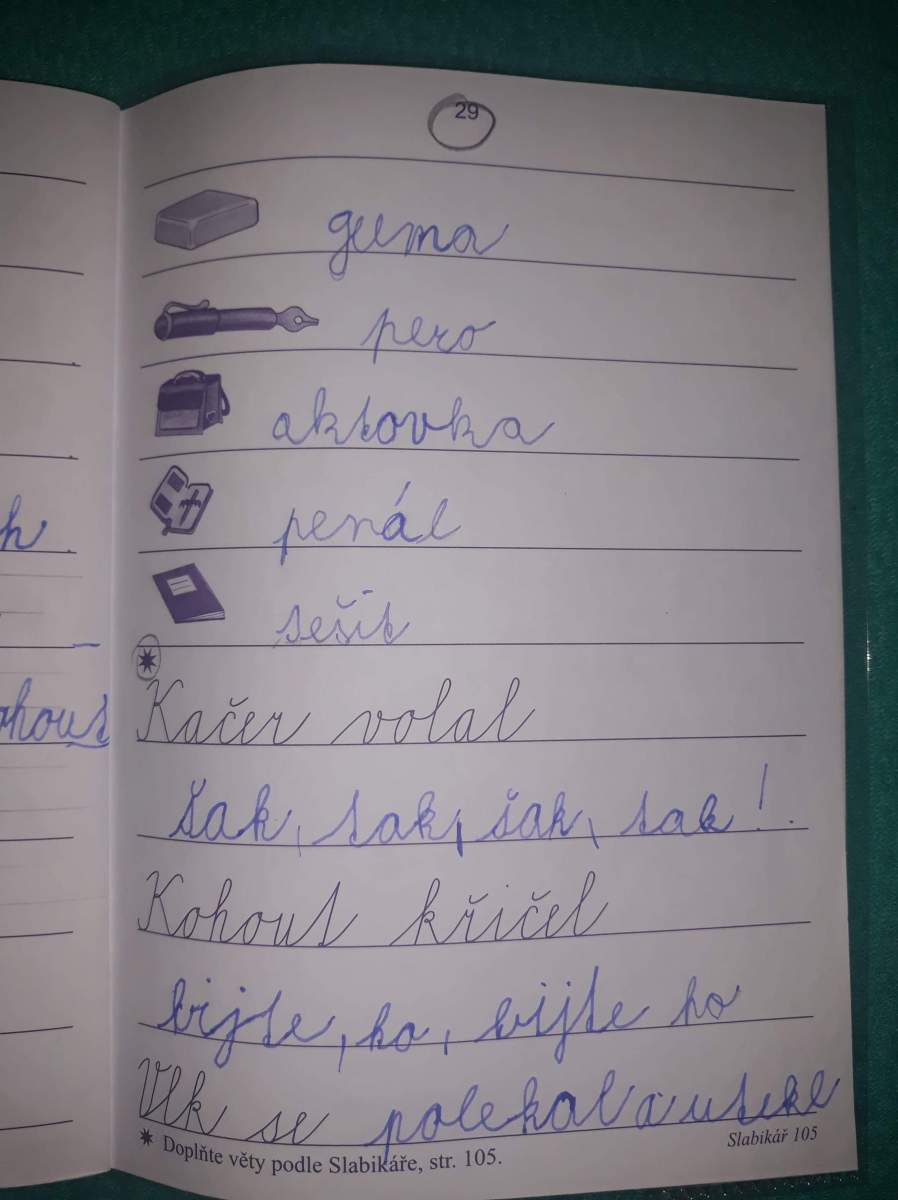 29
guma
pero
aktovka
penál
sešit
h.
ohout
Kačer volal
šak, sak, šak, sak!.
Kohout křičel
bijte, ho, bijte ho
Vlk se polekal a utekl
* Doplňte věty podle Slabikáře, str. 105.
Slabikář 105